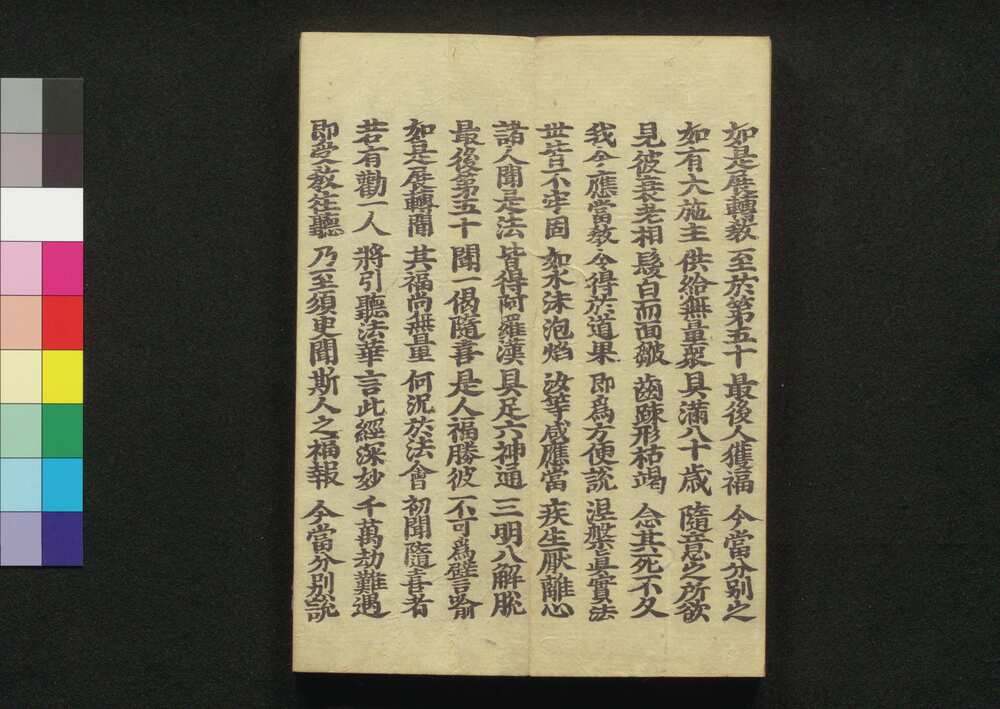 如是展轉教 至於第五十 最後人獲福 今當分別之
如有大施主 供給無量衆 具滿八十歳 隨意之所欲
見彼衰老相 髮白而面皺 齒踈形枯竭 念其死不久
我今應當教 令得於道果 即爲方便説 涅槃真實法
世皆不牢固 如水沫泡焰 汝等咸應當 疾生厭離心
諸人聞是法 皆得阿羅漢 具足六神通 三明八解脱
最後第五十 聞一偈隨喜 是人福勝彼 不可爲譬喻
如是展轉聞 其福尚無量 何況於法會 初聞隨喜者
若有勸一人 將引聽法華 言此經深妙 千萬劫難遇
即受教往聽 乃至須臾聞 斯人之福報 今當分別説